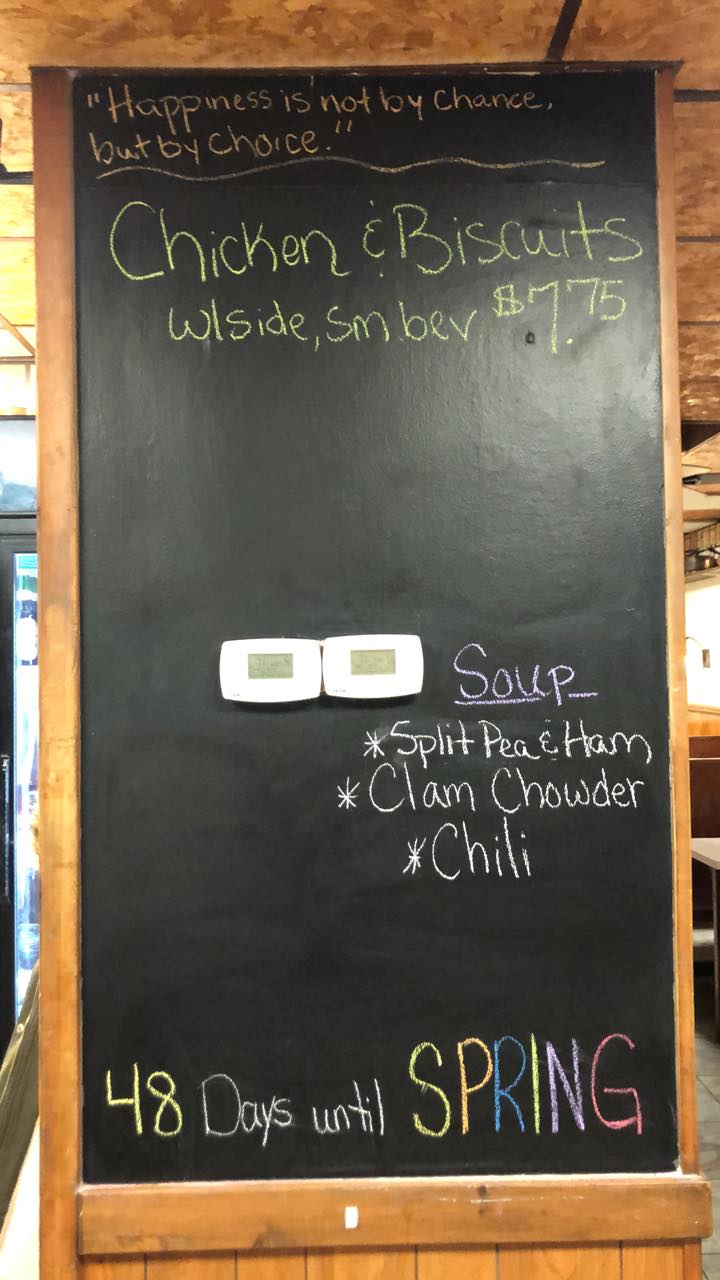 "Happiness is not by chance,
but by choice."
Chicken & Biscuits
w/side, sm. bev $7.75
Soup
*Split Pea & Ham
*Clam Chowder
*Chili
48 Days until SPRING